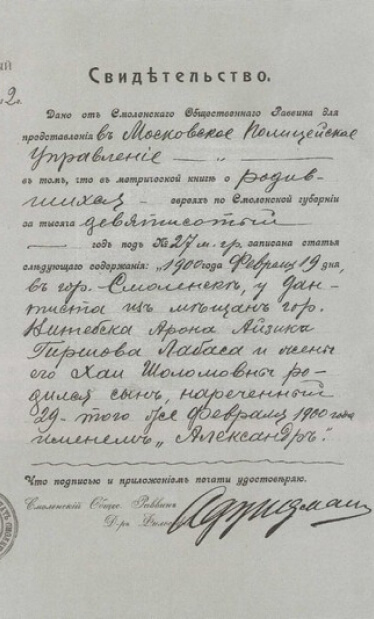 Свидѣтельство.
Дано отъ Смоленскаго Общественнаго Раввина для
представленія въ Московское Полицейское
Управленіе — „ —
въ томъ, что въ метрической книгѣ о родив-
шихся евреяхъ по Смоленской губерніи
за тысяча девятисотый
— годъ подъ № 27 м. гр. записана статья
слѣдующаго содержанія: „1900 года Февраля 19 дня,
въ гор. Смоленскѣ, у дан-
тиста изъ мѣщанъ гор.
Витебска Арона Айзика
Гиршова Лабаса и жены
его Хаи Шоломовны ро-
дился сынъ, нареченный
29-того же Февраля 1900 года
именемъ „Александръ".
Что подписью и приложеніемъ печати удостовѣряю.
Смоленскій Общес. Раввинъ
Д-ръ